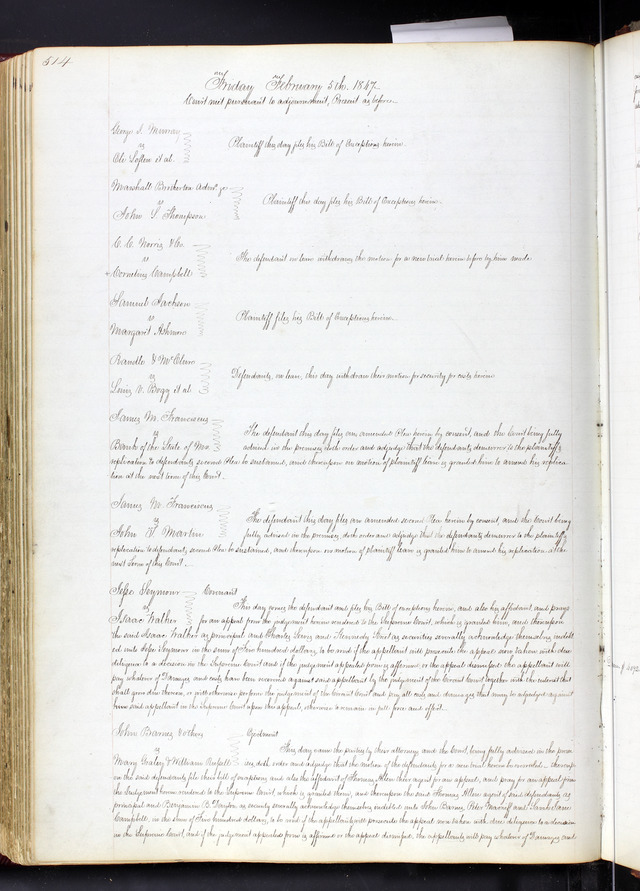 514
Friday February 5th. 1847
Court met pursuant to adjournment, Present as before
George S. Murray
vs
Plaintiff this day files his Bill of Exceptions herein
et al.
Marshall Brotherton Admr.
vs
Plaintiff this day files his Bill of Exceptions herein.
John S. Thompson
C. C. Norris & Co.
vs
The defendant on leave withdraws the motion for a new trial herein before by him made
Cornelius Campbell
Samuel Jackson
vs
Plaintiff files his Bill of Exceptions herein.
Margaret
Randle & McClure
vs
Defendants, on leave, this day withdraw their motion for security for costs herein
Louis V. Bogy et al
James M. Franciscus
vs
The defendant this day files an amended Plea herein by consent, and the Court being fully
Bank of the State of Mo.
advised in the premises, doth order and adjudge that the defendants demurrer to the plaintiffs
replication to defendants second Plea be sustained, and thereupon on motion of plaintiff leave is granted him to amend his replica-
tion at the next term of this Court.
James M. Franciscus
vs
The defendant this day files an amended second Plea herein by consent, and the Court being
John T. Martin
fully advised in the premises, doth order and adjudge that the defendants demurrer to the plaintiffs
replication to defendants second Plea be sustained, and thereupon on motion of plaintiff leave is granted him to amend his replication at the
next Term of this Court.
Seymour
Covenant
vs
This day comes the defendant and files his Bill of exceptions herein, and also his affidavit and prays
Isaac Walker
for an appeal from the judgment herein rendered to the Supreme Court, which is granted him, and thereupon
the said Isaac Walker as principal and Charles and Kennedy as securities severally acknowledge themselves indebt-
ed unto Seymour in the sum of Two hundred dollars, to be void if the appellant will prosecute the appeal now taken with due
diligence to a decision in the Supreme Court and if the judgment appealed from is affirmed, or the appeal dismissed the appellant will
pay whatever of Damages and costs have been recovered against said appellant by the judgment of the Circuit Court together with the interest that
shall grow due thereon, or will otherwise perform the judgment of the Circuit Court and pay all costs and damages that may be adjudged against
him said appellant in the Supreme Court upon the appeal, otherwise to remain in full force and effect.
John Barnes & others
Ejectment
vs
This day came the parties by their attorneys and the Court being fully advised in the prem-
Mary & William Russell
ises, doth order and adjudge that the motion of the defendants for a new trial herein be overruled, thereup-
on the said defendants file their bill of exceptions and also the affidavit of Thomas Allen their agent for an appeal, and pray for an appeal from
the Judgment herein rendered to the Supreme Court, which is granted them, and thereupon the said Thomas Allen agent of said defendants as
principal and Benjamin B. as security severally acknowledge themselves indebted unto John Barnes, and
Campbell, in the sum of Two hundred dollars, to be void if the appellants will prosecute the appeal now taken with due diligence to a decision
in the Supreme Court, and if the judgment appealed from is affirmed or the appeal dismissed, the appellants will pay whatever of Damages and